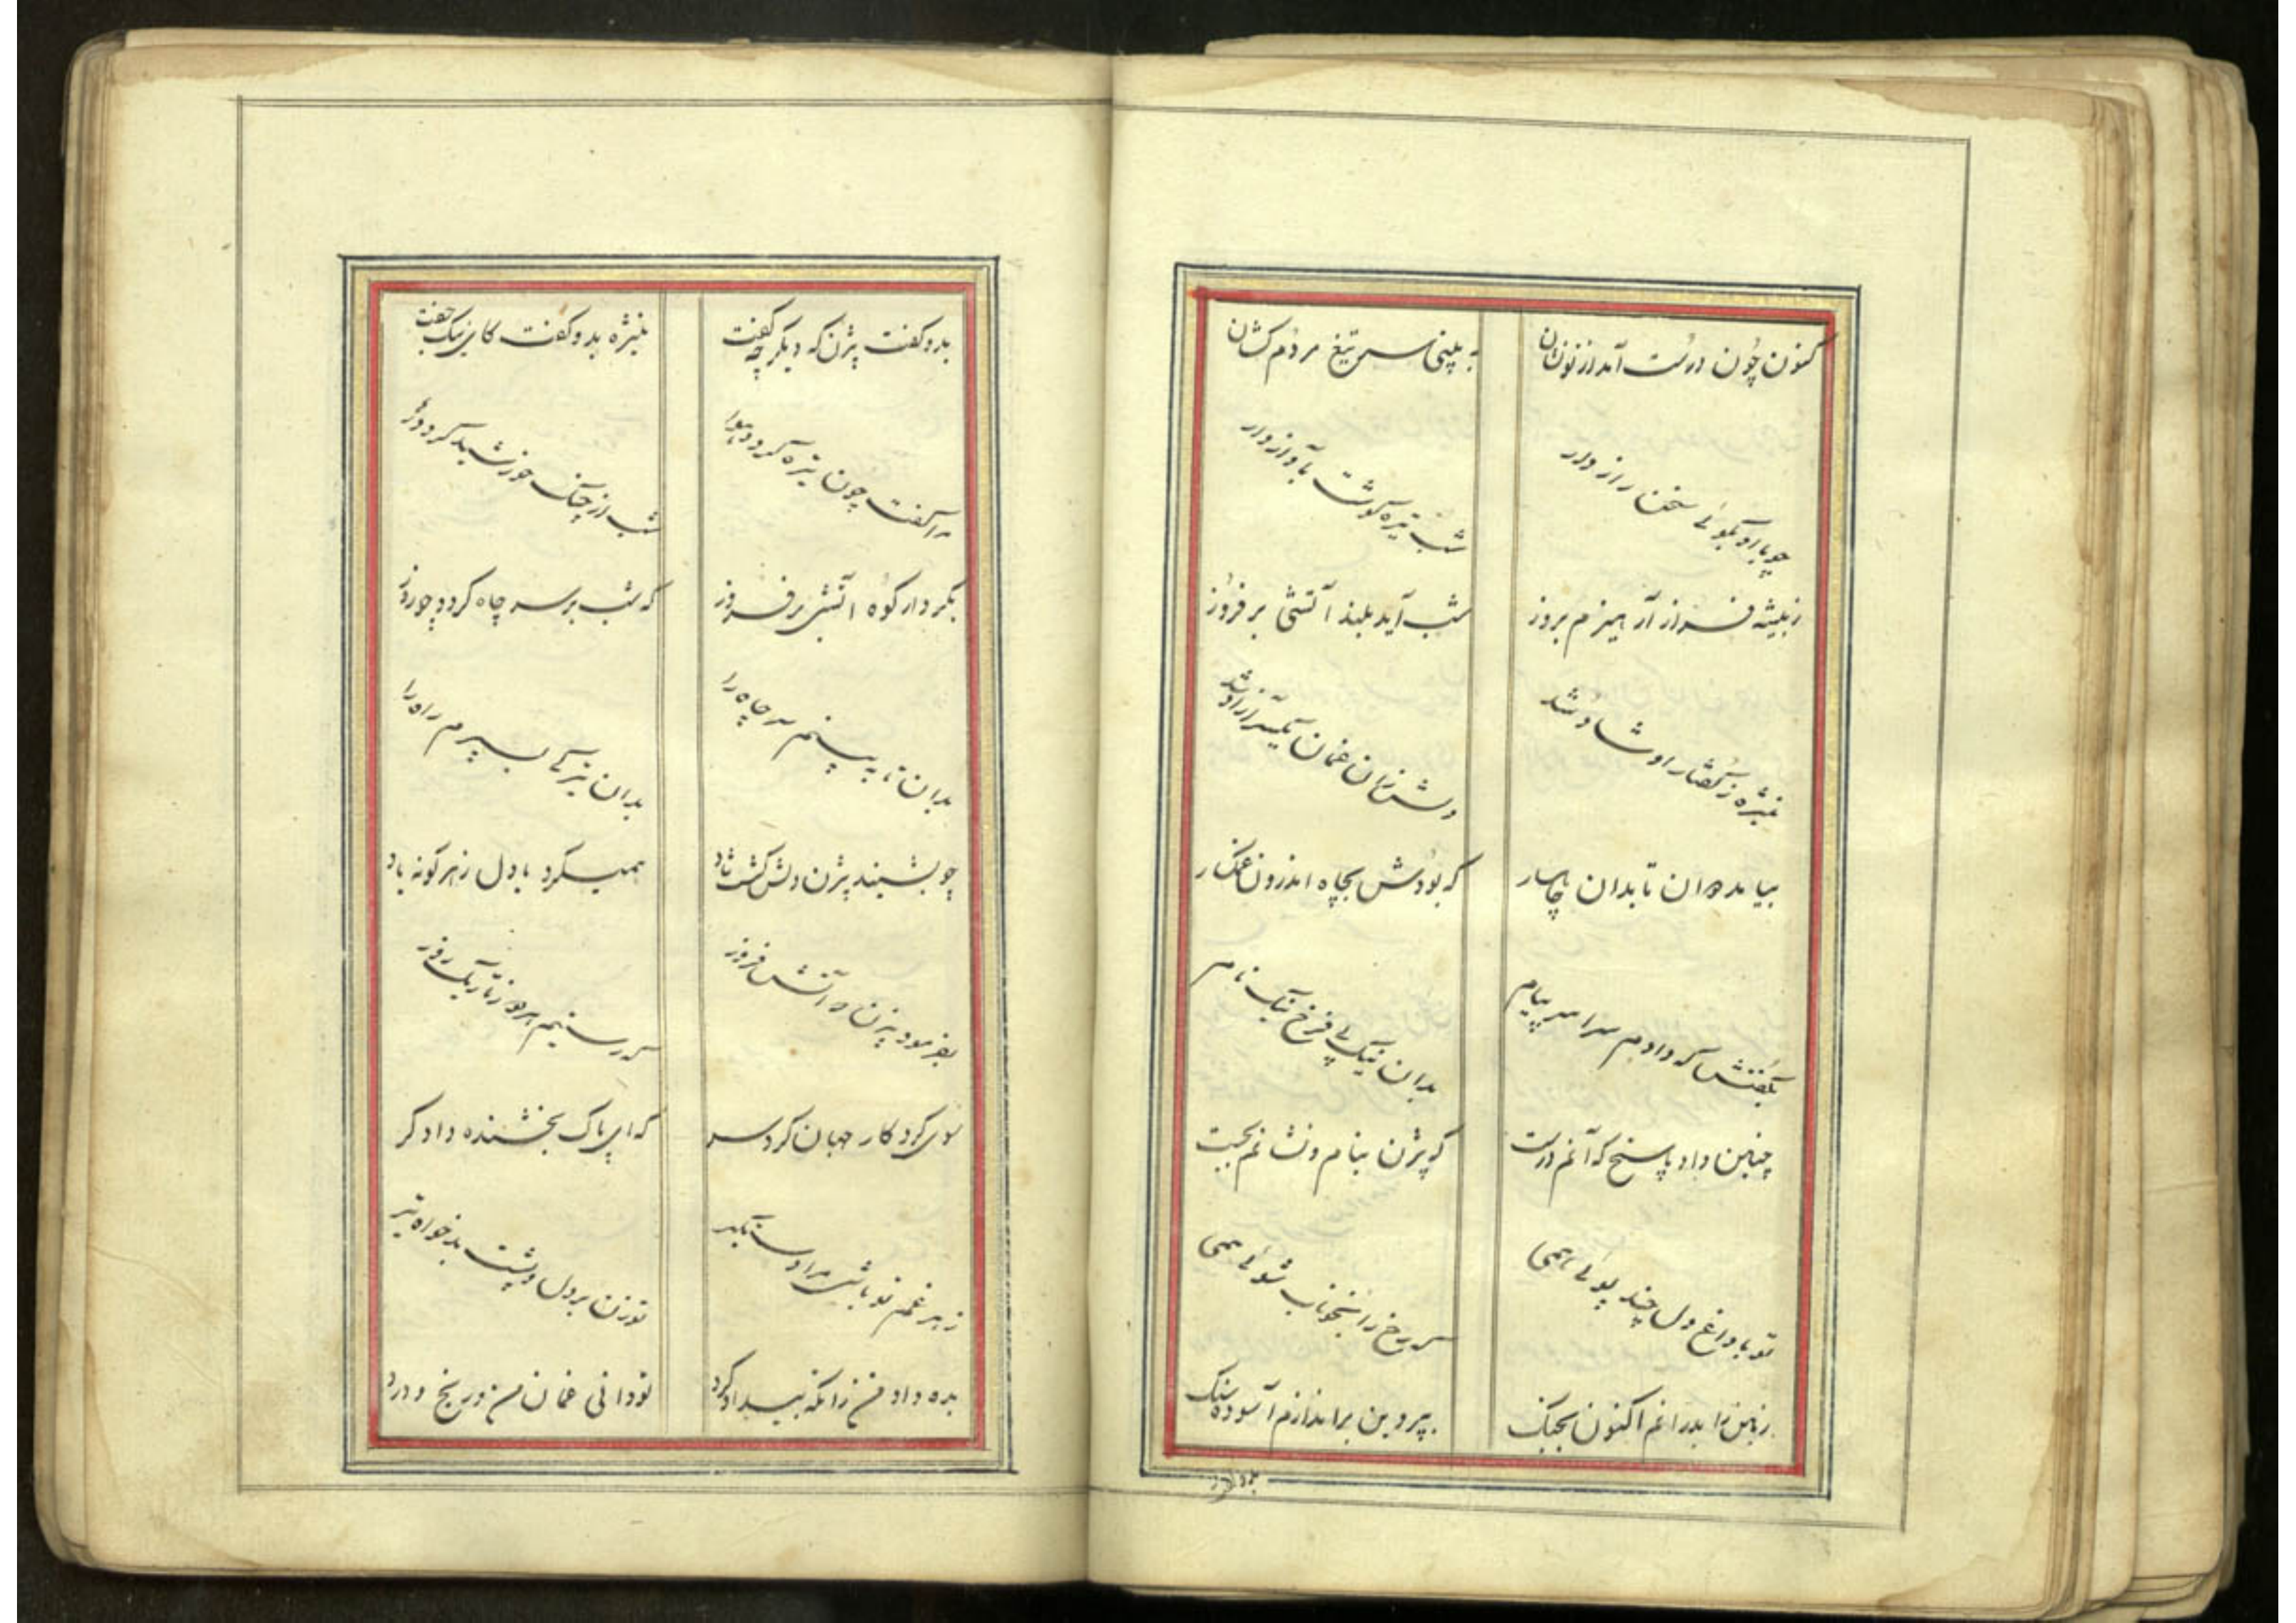 کنون چون درست آمد از تو نشان
به بینی سر تیغ مردم کشان
چو با او بگوئی سخن راز دار
شب تیره گوشت بآواز دار
ز بیشه فراز آر هیزم بروز
شب آید بلند آتشی بر فروز
منیژه ز گفتار او شاد شد
دلش زان غمان یکسر آزاد شد
بیامد دوان تا بدان چاهسار
که بودش بچاه اندرون غمگسار
بگفتش که دادم سراسر پیام
بدان نیک پی فرخ نیک نام
چنین داد پاسخ که آنم درست
که بیژن بنام و نشانم بجست
تو با داغ دل چند پوئی همی
که رخ را بخوناب شوئی همی
زمین را بدرانم اکنون بچنگ
به پروین براندازم آسوده سنگ
بدو گفت بیژن که دیگر چه گفت
منیژه بدو گفت کای نیک جفت
مرا گفت چون تیره گردد هوا
شب از چنگ خورشید گردد رها
بکردار کوه آتشی بر فروز
که شب بر سر چاه گردد چو روز
بدان تا به بینم سر چاه را
بدان تیرگی بسپرم راه را
چو بشنید بیژن دلش گشت شاد
همیکرد با دل ز هر گونه یاد
بفرمود بیژن که آتش فروز
که رستیم هر دو ز تاریک روز
سوی کردگار جهان کرد سر
که ای پاک بخشنده دادگر
ز هر غم تو باشی مرا دستگیر
تو زن بر دل و پشت بدخواه تیر
بده داد من زانکه بیداد کرد
تو دانی غمان من و رنج و درد